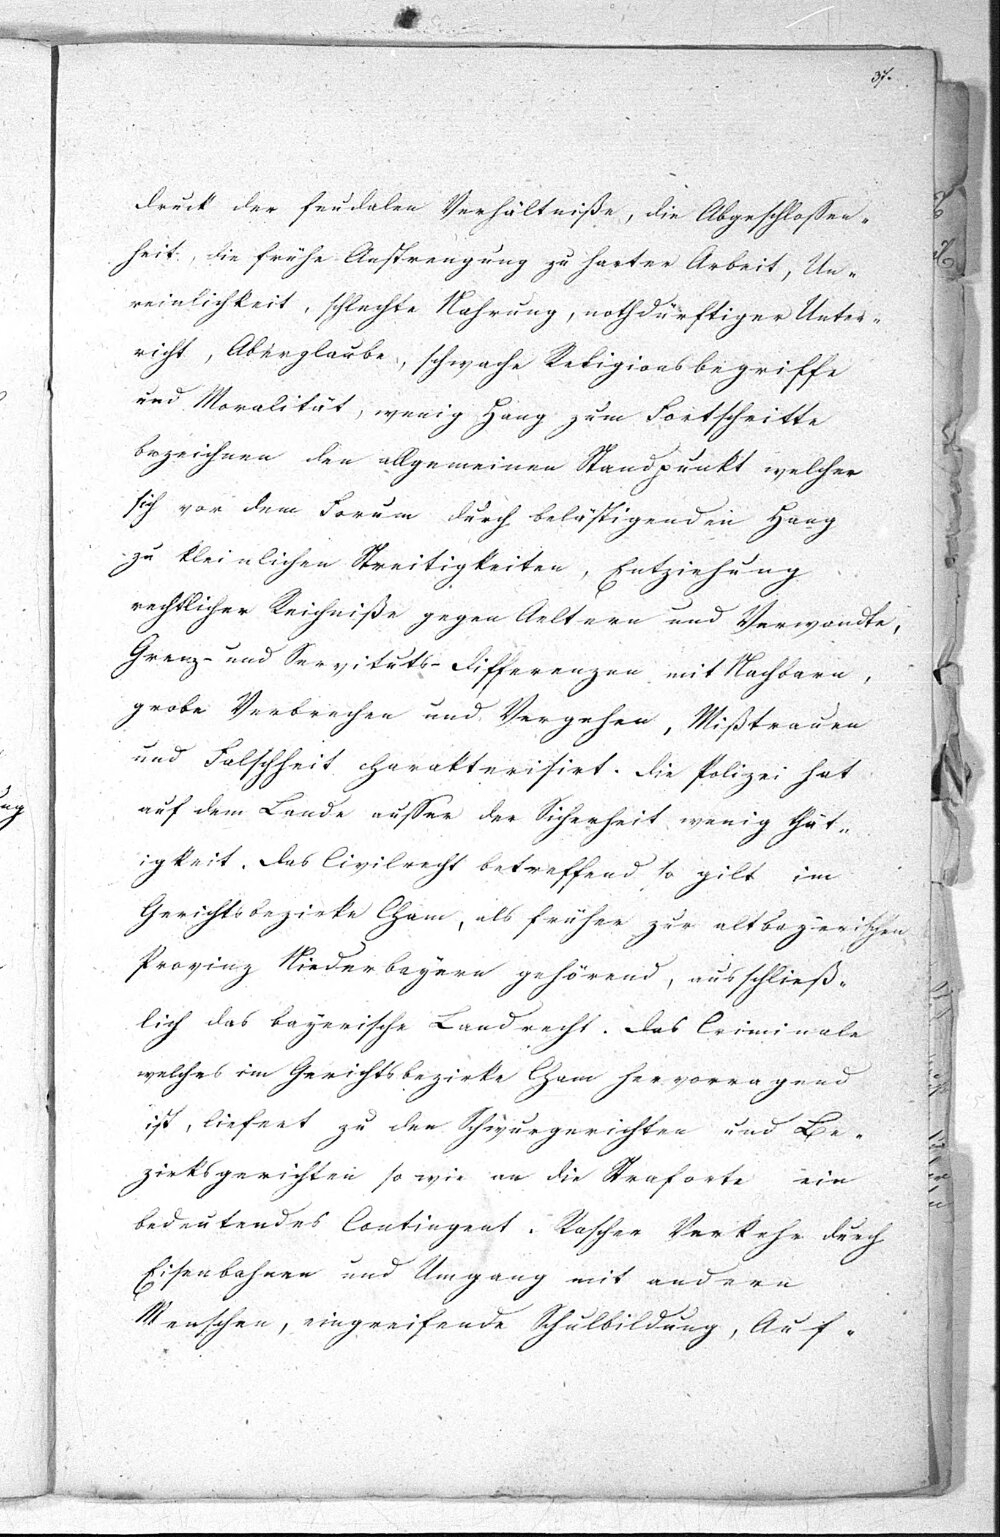 37.
druck der feudalen Verhältniße, die Abgeschlossen-
heit, die frühe Anstrengung zu harter Arbeit, Un-
reinlichkeit, schlechte Nahrung, nothdürftiger Unter-
richt, Aberglaube, schwache Religionsbegriffe
und Moralität, wenig Hang zum Fortschritte
bezeichnen den allgemeinen Standpunkt welcher
sich vor dem Forum durch belästigenden Hang
zu kleinlichen Streitigkeiten, Entziehung
rechtlicher Reichniße gegen Aeltern und Verwandte,
Grenz- und Servituts-differenzen mit Nachbarn,
grobe Verbrechen und Vergehen, Mißtrauen
und Falschheit charakterisirt. Die Polizei hat
auf dem Lande ausser der Sicherheit wenig Thät-
igkeit. Das Civilrecht betreffend so gilt im
Gerichtsbezirke Cham, als früher zur altbayerischen
Provinz Niederbayern gehörend, ausschließ-
lich das bayerische Landrecht. Das Criminale
welches im Gerichtsbezirke Cham hervorragend
ist, liefert zu den Schwurgerichten und Be-
zirksgerichten so wie an die Straforte ein
bedeutendes Contingent. Rascher Verkehr durch
Eisenbahnen und Umgang mit andern
Menschen, eingreifende Schulbildung, Auf-